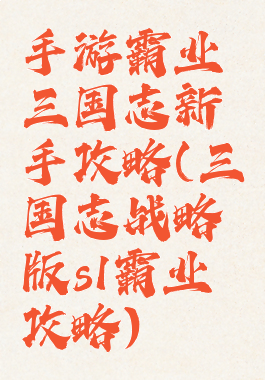 手游霸业
三国志新
手攻略(三
国志战略
版sl霸业
攻略)